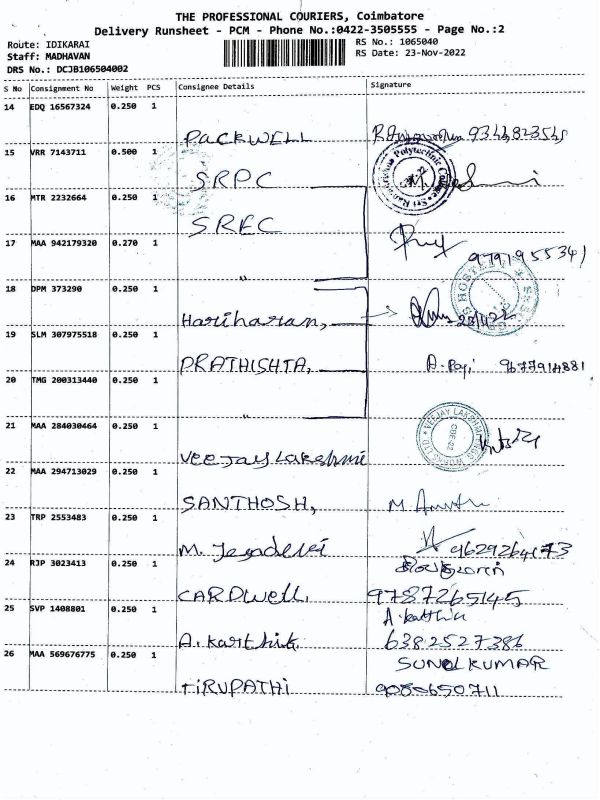 THE PROFESSIONAL COURIERS, Coimbatore
Delivery Runsheet - PCM - Phone No.:0422-3505555 - Page No.:2
Route: IDIKARAI
RS No.: 1065040
Staff: MADHAVAN
RS Date: 23-Nov-2022
DRS No.: DCJB106504002
S No Consignment No Weight PCS Consignee Details Signature
14 EDQ 16567324 0.250 1
PACKWELL
15 VRR 7143711 0.500 1
SRPC
16 MTR 2232664 0.250 1
SREC
17 MAA 942179320 0.270 1
"
9791955341
18 DPM 373290 0.250 1
Hariharan,
19 SLM 307975518 0.250 1
PRATHISHTA, 9677914881
20 TMG 200313440 0.250 1
"
21 MAA 284030464 0.250 1
VEEJAY LAKSHMI
Veejay Lakshmi
22 MAA 294713029 0.250 1
SANTHOSH,
23 TRP 2553483 0.250 1
M. Jeyadevi 9629264173
24 RJP 3023413 0.250 1
CARDWELL, 9787265145
25 SVP 1408801 0.250 1
A. karthik
A. karthik. 6382527386
26 MAA 569676775 0.250 1
SUNIL KUMAR
TIRUPATHI